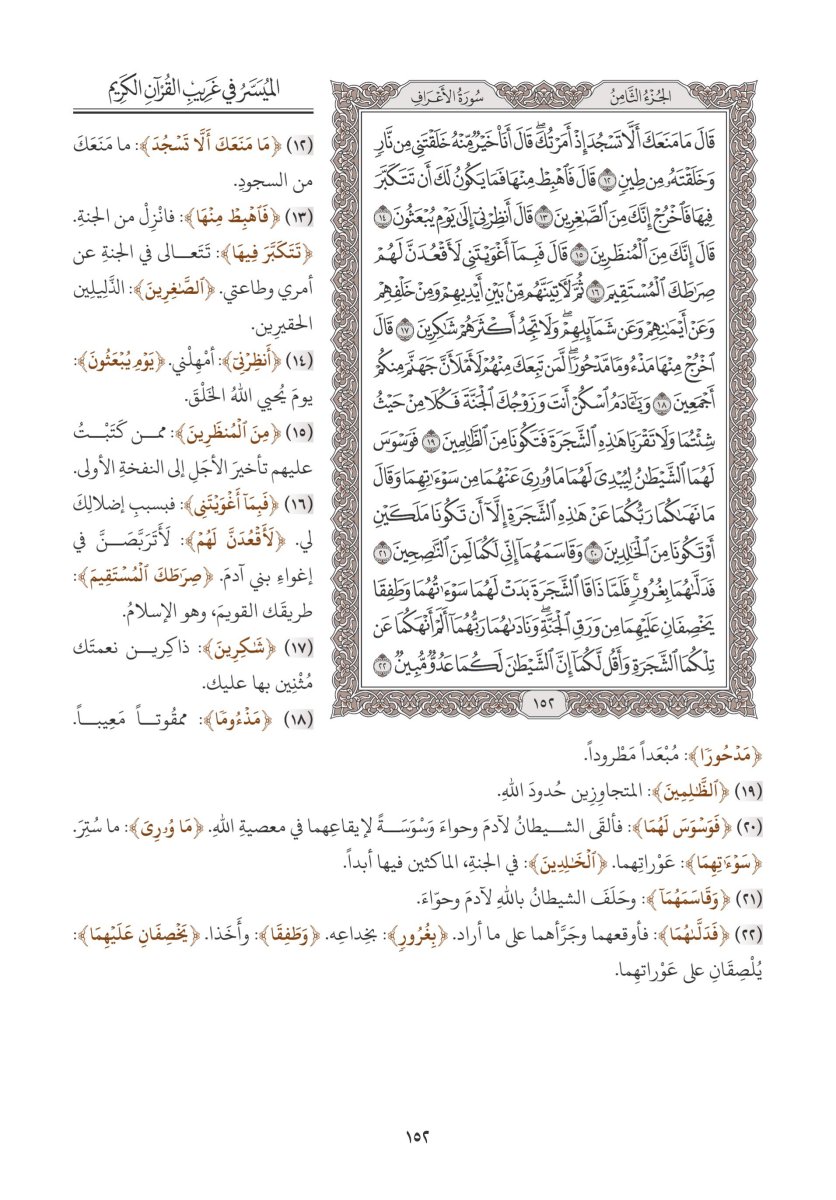 الجُزْءُ الثَّامِنُ
سُورَةُ الأَعْرَافِ
قَالَ مَا مَنَعَكَ أَلَّا تَسْجُدَ إِذْ أَمَرْتُكَۖ قَالَ أَنَا۠ خَيْرٌ مِّنْهُ خَلَقْتَنِي مِن نَّارٍ
وَخَلَقْتَهُۥ مِن طِينٍ ١٢ قَالَ فَٱهْبِطْ مِنْهَا فَمَا يَكُونُ لَكَ أَن تَتَكَبَّرَ
فِيهَا فَٱخْرُجْ إِنَّكَ مِنَ ٱلصَّٰغِرِينَ ١٣ قَالَ أَنظِرْنِيٓ إِلَىٰ يَوْمِ يُبْعَثُونَ ١٤
قَالَ إِنَّكَ مِنَ ٱلْمُنظَرِينَ ١٥ قَالَ فَبِمَآ أَغْوَيْتَنِي لَأَقْعُدَنَّ لَهُمْ
صِرَٰطَكَ ٱلْمُسْتَقِيمَ ١٦ ثُمَّ لَأٓتِيَنَّهُم مِّنۢ بَيْنِ أَيْدِيهِمْ وَمِنْ خَلْفِهِمْ
وَعَنْ أَيْمَٰنِهِمْ وَعَن شَمَآئِلِهِمْۖ وَلَا تَجِدُ أَكْثَرَهُمْ شَٰكِرِينَ ١٧ قَالَ
ٱخْرُجْ مِنْهَا مَذْءُومًا مَّدْحُورًاۖ لَّمَن تَبِعَكَ مِنْهُمْ لَأَمْلَأَنَّ جَهَنَّمَ مِنكُمْ
أَجْمَعِينَ ١٨ وَيَٰٓـَٔادَمُ ٱسْكُنْ أَنتَ وَزَوْجُكَ ٱلْجَنَّةَ فَكُلَا مِنْ حَيْثُ
شِئْتُمَا وَلَا تَقْرَبَا هَٰذِهِ ٱلشَّجَرَةَ فَتَكُونَا مِنَ ٱلظَّٰلِمِينَ ١٩ فَوَسْوَسَ
لَهُمَا ٱلشَّيْطَٰنُ لِيُبْدِيَ لَهُمَا مَا وُۥرِيَ عَنْهُمَا مِن سَوْءَٰتِهِمَا وَقَالَ
مَا نَهَىٰكُمَا رَبُّكُمَا عَنْ هَٰذِهِ ٱلشَّجَرَةِ إِلَّآ أَن تَكُونَا مَلَكَيْنِ
أَوْ تَكُونَا مِنَ ٱلْخَٰلِدِينَ ٢٠ وَقَاسَمَهُمَآ إِنِّي لَكُمَا لَمِنَ ٱلنَّٰصِحِينَ ٢١
فَدَلَّىٰهُمَا بِغُرُورٍۚ فَلَمَّا ذَاقَا ٱلشَّجَرَةَ بَدَتْ لَهُمَا سَوْءَٰتُهُمَا وَطَفِقَا
يَخْصِفَانِ عَلَيْهِمَا مِن وَرَقِ ٱلْجَنَّةِۖ وَنَادَىٰهُمَا رَبُّهُمَآ أَلَمْ أَنْهَكُمَا عَن
تِلْكُمَا ٱلشَّجَرَةِ وَأَقُل لَّكُمَآ إِنَّ ٱلشَّيْطَٰنَ لَكُمَا عَدُوٌّ مُّبِينٌ ٢٢
١٥٢
المُيَسَّرُ فِي غَرِيبِ القُرْآنِ الكَرِيمِ
(١٢) ﴿مَا مَنَعَكَ أَلَّا تَسْجُدَ﴾: ما مَنَعَكَ
من السجودِ.
(١٣) ﴿فَٱهْبِطْ مِنْهَا﴾: فانْزِلْ من الجنةِ.
﴿تَتَكَبَّرَ فِيهَا﴾: تتَعـالى في الجنةِ عن
أمري وطاعتي. ﴿ٱلصَّٰغِرِينَ﴾: الذَّلِيلِين
الحقيرِين.
(١٤) ﴿أَنظِرْنِيٓ﴾: أمْهِلْني. ﴿يَوْمِ يُبْعَثُونَ﴾:
يومَ يُحيي اللهُ الخَلْقَ.
(١٥) ﴿مِنَ ٱلْمُنظَرِينَ﴾: ممـن كَتَبْتُ
عليهم تأخيرَ الأجَلِ إلى النفخةِ الأولى.
(١٦) ﴿فَبِمَآ أَغْوَيْتَنِي﴾: فبسببِ إضلالِكَ
لي. ﴿لَأَقْعُدَنَّ لَهُمْ﴾: لَأَتَرَبَّصَـنَّ في
إغواءِ بني آدمَ. ﴿صِرَٰطَكَ ٱلْمُسْتَقِيمَ﴾:
طريقَك القويمَ، وهو الإسلامُ.
(١٧) ﴿شَٰكِرِينَ﴾: ذاكِريـن نعمتَك
مُثْنِين بها عليك.
(١٨) ﴿مَذْءُومًا﴾: ممقُوتـاً مَعِيبـاً.
﴿مَدْحُورًا﴾: مُبْعَداً مَطْروداً.
(١٩) ﴿ٱلظَّٰلِمِينَ﴾: المتجاوِزِين حُدودَ اللهِ.
(٢٠) ﴿فَوَسْوَسَ لَهُمَا﴾: فألقَى الشـيطانُ لآدمَ وحواءَ وَسْوَسَـةً لإيقاعِهما في معصيةِ اللهِ. ﴿مَا وُۥرِيَ﴾: ما سُتِرَ.
﴿سَوْءَٰتِهِمَا﴾: عَوْراتِهما. ﴿ٱلْخَٰلِدِينَ﴾: في الجنةِ، الماكثين فيها أبداً.
(٢١) ﴿وَقَاسَمَهُمَآ﴾: وحَلَفَ الشيطانُ باللهِ لآدمَ وحوّاءَ.
(٢٢) ﴿فَدَلَّىٰهُمَا﴾: فأوقعهما وجَرَّأهما على ما أراد. ﴿بِغُرُورٍ﴾: بخِداعِه. ﴿وَطَفِقَا﴾: وأَخَذا. ﴿يَخْصِفَانِ عَلَيْهِمَا﴾:
يُلْصِقَانِ على عَوْراتِهِما.
١٥٢